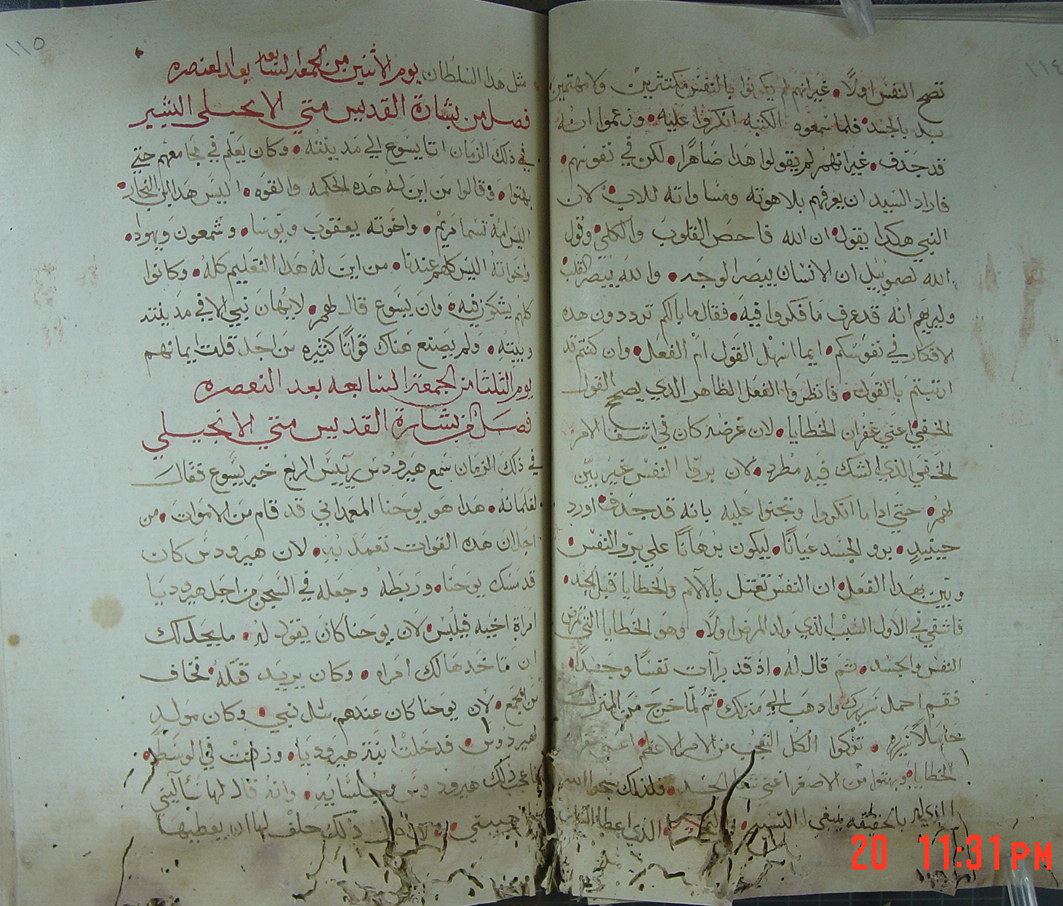 ١١٤
تصح النفس اولًا • غير انهم لم يكونوا بالنفس مكتثرين ولا مهتمين
بالجسد • فلما سمعوه الكتبه انكروا عليه • وزعموا انه
قد جدف • غير انهم لم يقولوا هذا ضاهرًا • لكن في نفوسهم •
فاراد السيد ان يعرفهم بلاهوته ومساواته للاب • لان
النبي هكذا يقول • ان الله فاحص القلوب والكلي • وقول
الله لصمويل ان الانسان يبصر الوجه • والله يبصر القلب
وليريهم انه قد عرف ما فكروا فيه • فقال ما بالكم ترددون هذه
الافكار في نفوسكم • ايما اسهل القول ام الفعل • وان كنتم قد
ارتبتم بالقول • فانظروا الفعل الظاهر الذي يصحح القول
الخفي • اعني غفران الخطايا • لان غرضه كان في اشفا الامر
الخفي الذي الشك فيه مطرد • لان برو النفس غير بين
لهم • حتي اذا ما انكروا وتجنوا عليه بانه قد جدف • اورد
حينيدٍ • برو الجسد عيانًا • ليكون برهانًا علي برو النفس •
وبين بهذا الفعل • ان النفس تعتل بالالام والخطايا قبل الجسد •
فاشفي في الاول السبب الذي ولد المرض اولًا • وهو الخطايا التي تمرض
النفس والجسد • ثم قال له • اذ قد برات نفسًا وجسدًا •
فقم احمل سريرك واذهب الي منزلك • ثم لما خرج من المنزل
حاملًا سريره • تركوا الكل التعجب من الامر الاعظم • اعني
الخطايا • وبهتوا من الاصغر اعني الجسد • فلذلك سبحوا الله
الذي له بالحقيقه ينبغي التسبيح • الذي اعطا الناس
١١٥
مثل هدا السلطان يوم الاثنين من الجمعه السابعه بعد العنصره
فصل من بشارة القديس متي الانجيلي البشير
في ذلك الزمان اتا يسوع الي مدينته • وكان يعلم في مجامعهم حتي
بهتوا • وقالوا من اين له هده الحكمه والقوه • اليس هدا ابن النجار
اليس امه تسما مريم • واخوته يعقوب ويوسا • وشمعون ويهودا •
واخواته اليس كلهم عندنا • من اين له هدا التعليم كله • وكانوا
كلهم يشكون فيه • وان يسوع قال لهم • لا يهان نبي الا في مدينته
وبيته • ولم يصنع هناك قواتًا كثيره من اجل قلت ايمانهم
يوم الثلثا من الجمعة السابعه بعد العنصره
فصل من بشارة القديس متي الانجيلي
في ذلك الزمان سمع هيرودس رييس الربع خبر يسوع فقال
لغلمانه • هدا هو يوحنا المعمداني قد قام من الاموات • من
اجل ان هده القوات تعمل به • لان هيرودس كان
قد مسك يوحنا • وربطه وجعله في السجن من اجل هيروديا
امراة اخيه فيلبس لان يوحنا كان يقول له • ما يحل لك
ان تاخدها لك امراه • وكان يريد قتله فخاف
من الجمع • لان يوحنا كان عندهم مثل نبي • وكان مولد
لهيرودس • فدخلت ابنة هيروديا • ورقصت في الوسط •
فاعجب ذلك هيرودس وجلسايه • وانه قال لها سأليني
ذلك حلف لها ان يعطيها
20 11:31 PM